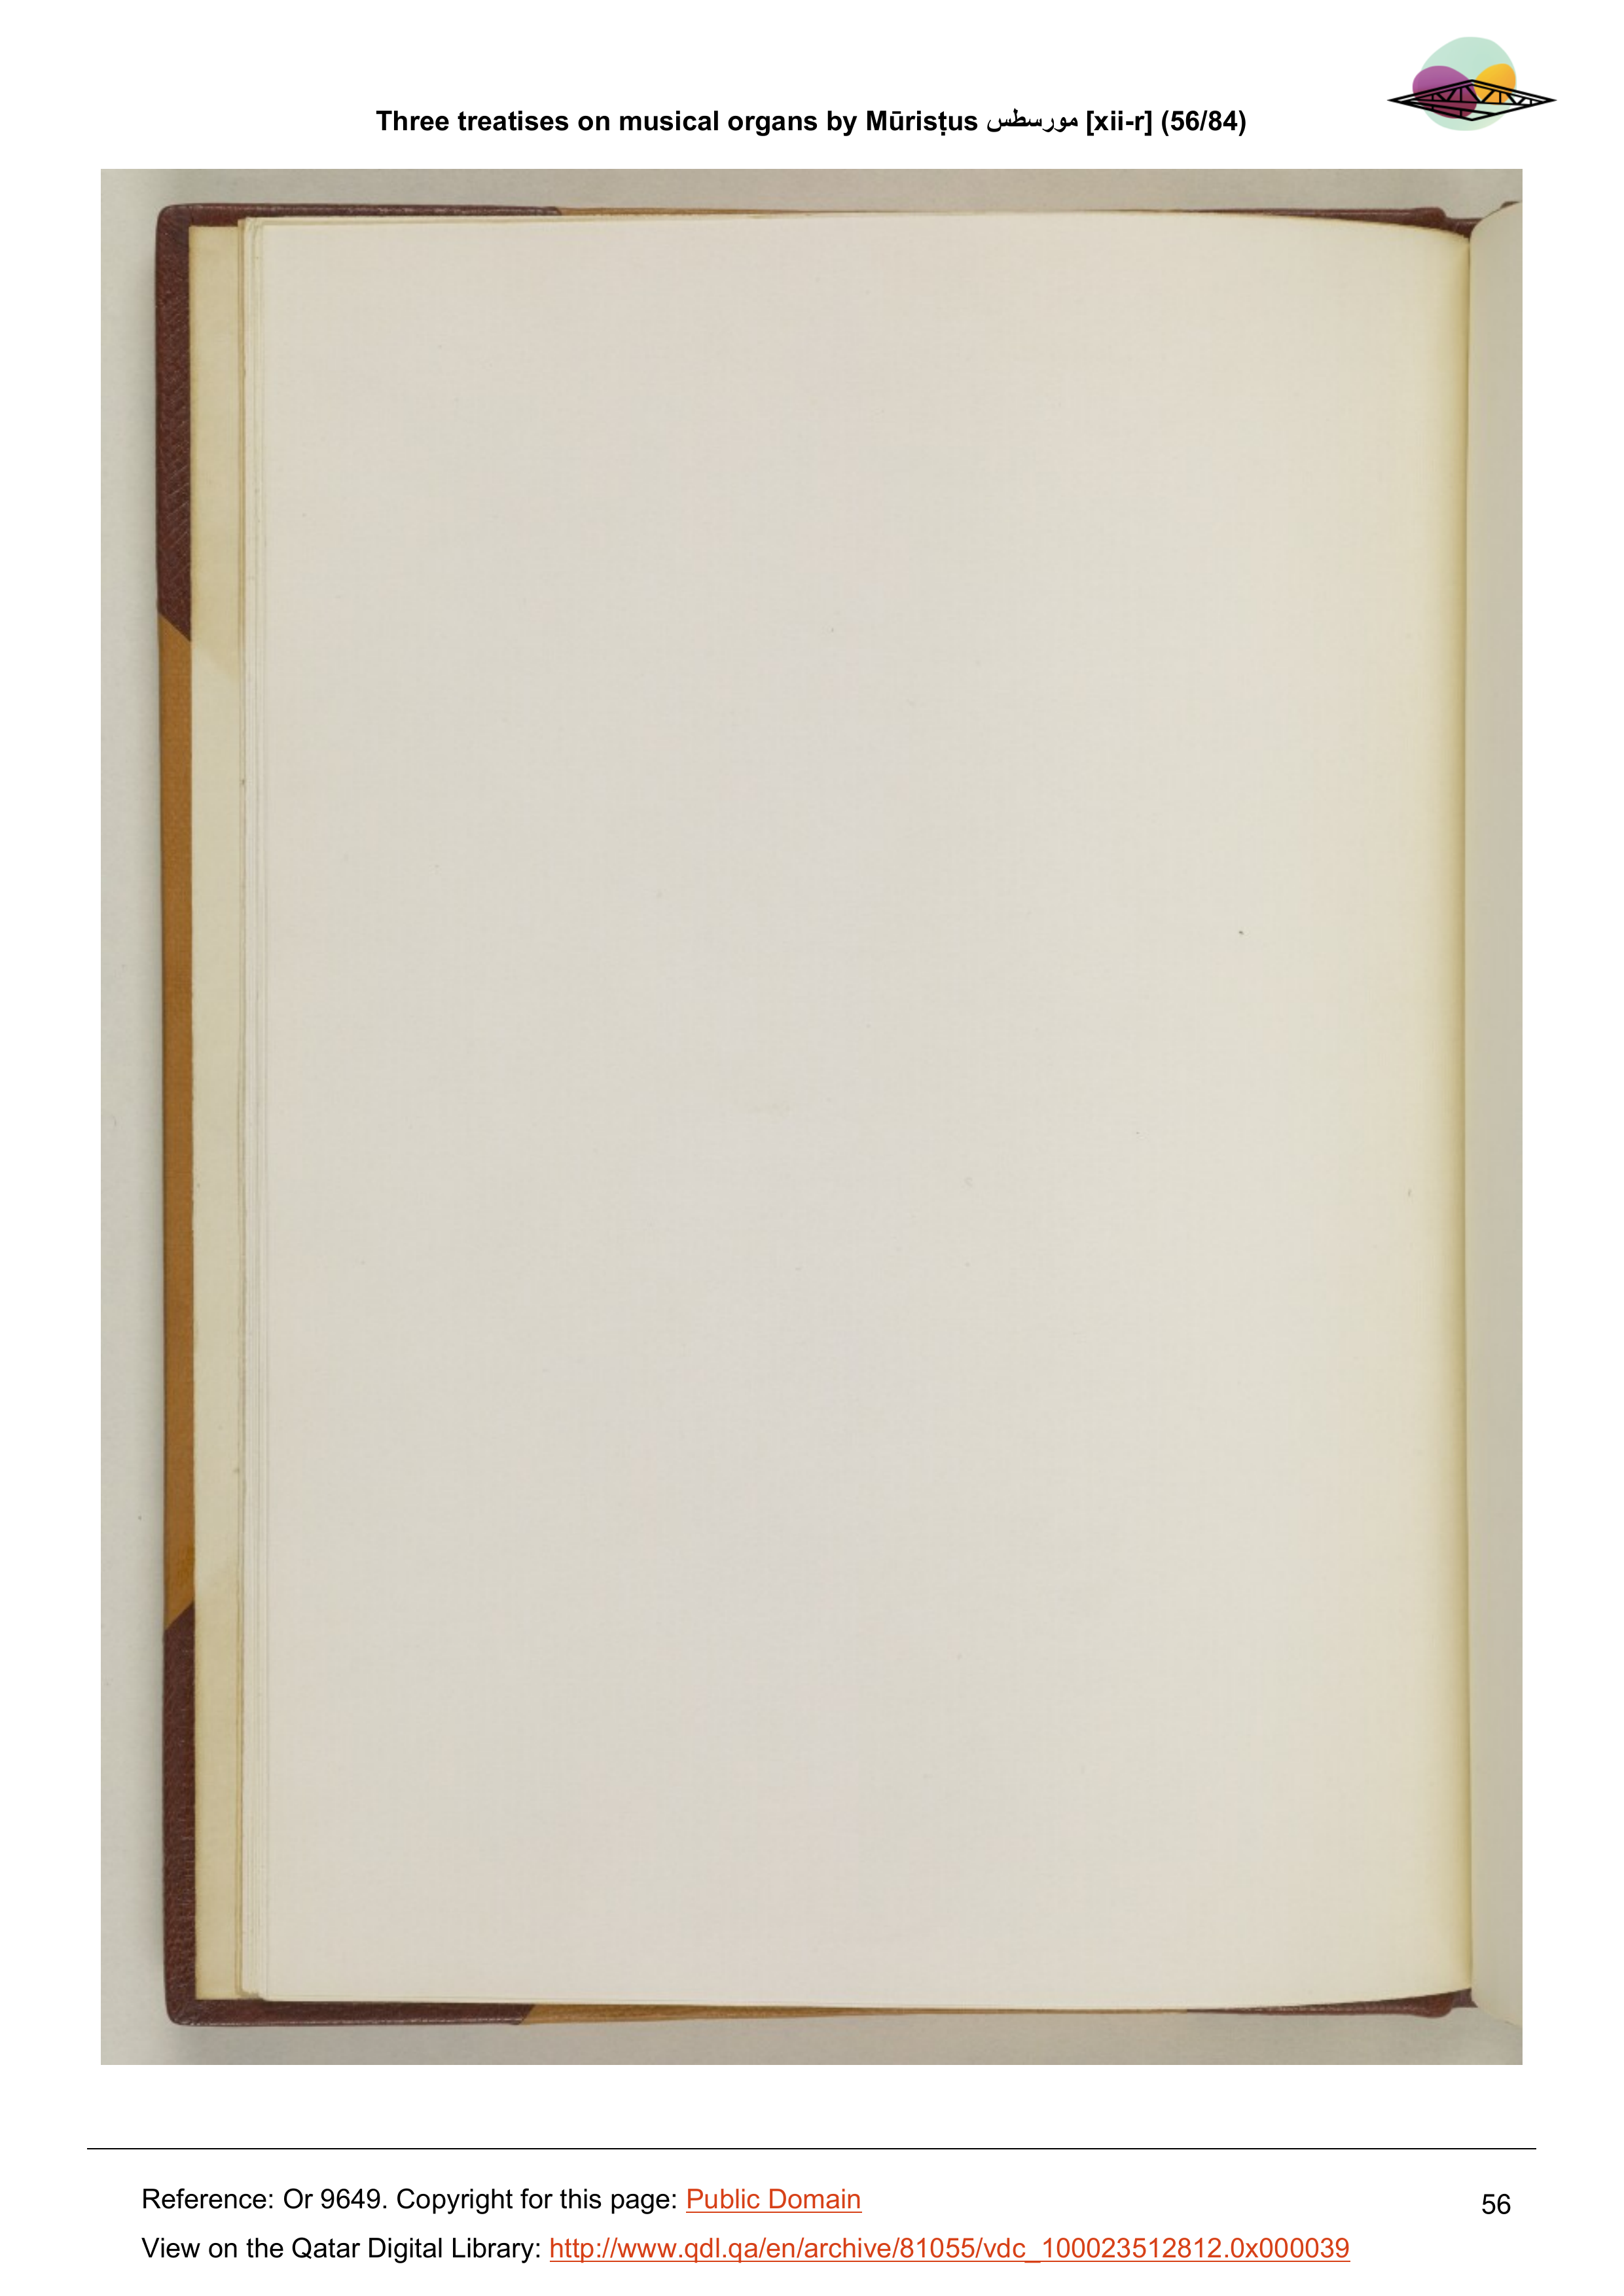 Three treatises on musical organs by Mūrisṭus مورسطس [xii-r] (56/84)
Reference: Or 9649. Copyright for this page: Public Domain
56
View on the Qatar Digital Library: http://www.qdl.qa/en/archive/81055/vdc_100023512812.0x000039